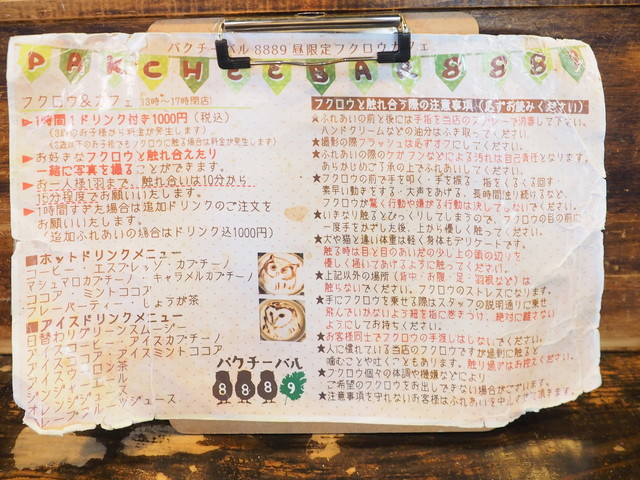 パクチーバル 8889 昼限定フクロウカフェ
PAKCHEEBAR 888
フクロウ&カフェ (13時〜17時閉店)
▶1時間1ドリンク付き1000円(税込)
(3歳のお子様から料金が発生します)
(2歳以下のお子様でもフクロウに触る場合は料金が発生します)
▶お好きなフクロウと触れ合えたり
一緒に写真を撮ることができます。
▶お一人様1羽まで、触れ合いは10分から
15分程度でお願いいたします。
▶1時間すぎた場合は追加ドリンクのご注文を
お願いいたします。
(追加ふれあいの場合はドリンク込1000円)
■ホットドリンクメニュー
コーヒー・エスプレッソ・カプチーノ
マシュマロカプチーノ・キャラメルカプチーノ
ココア・ミントココア
フレーバーティー・しょうが茶
■アイスドリンクメニュー
日替わりグリーンスムージー
アイスコーヒー・アイスカプチーノ
アイスココア・アイスミントココア
パクチーバル
8 8 8 9
フクロウと触れ合う際の注意事項(必ずお読みください)
★ふれあいの前と後には手指を当店のスプレーで消毒して下さい。
ハンドクリームなどの油分はふき取ってください。
★撮影の際フラッシュは必ずオフにしてください。
★ふれあいの際のケガやフンなどによる汚れは自己責任となります。
あらかじめご了承の上でふれあいしてください。
★フクロウの前で手を叩く・手を振る・指をくるくる回す・
素早い動きをする・大声をあげる、長時間独り続けるなど、
フクロウが驚く行動や嫌がる行動は決してしないでください。
★いきなり触るとびっくりしてしまうので、フクロウの目の前に
一度手をかざした後、上から優しく触ってください。
★犬や猫と違い体重は軽く身体もデリケートです。
触る時は目と目のあいだの少し上の頭の辺りを
優しく掻いてあげるように触ってください。
★上記以外の場所(背中・お腹・足・羽根など)は
触らないでください。フクロウのストレスになります。
★手にフクロウを乗せる際はスタッフの説明通りに乗せ
飛んでいかないよう紐を指に巻きつけ、絶対に離さない
ようにしてお持ちください。
★お客様同士でフクロウの手渡しはしないでください。
★人に慣れている当店のフクロウですが過剰に触ると
噛むことや吐くこともあります。触り過ぎはお控えください。
★フクロウ個々の体調や機嫌などにより
ご希望のフクロウをお出しできない場合がございます。
★注意事項を守れないお客様はふれあいを中止させて頂きます。